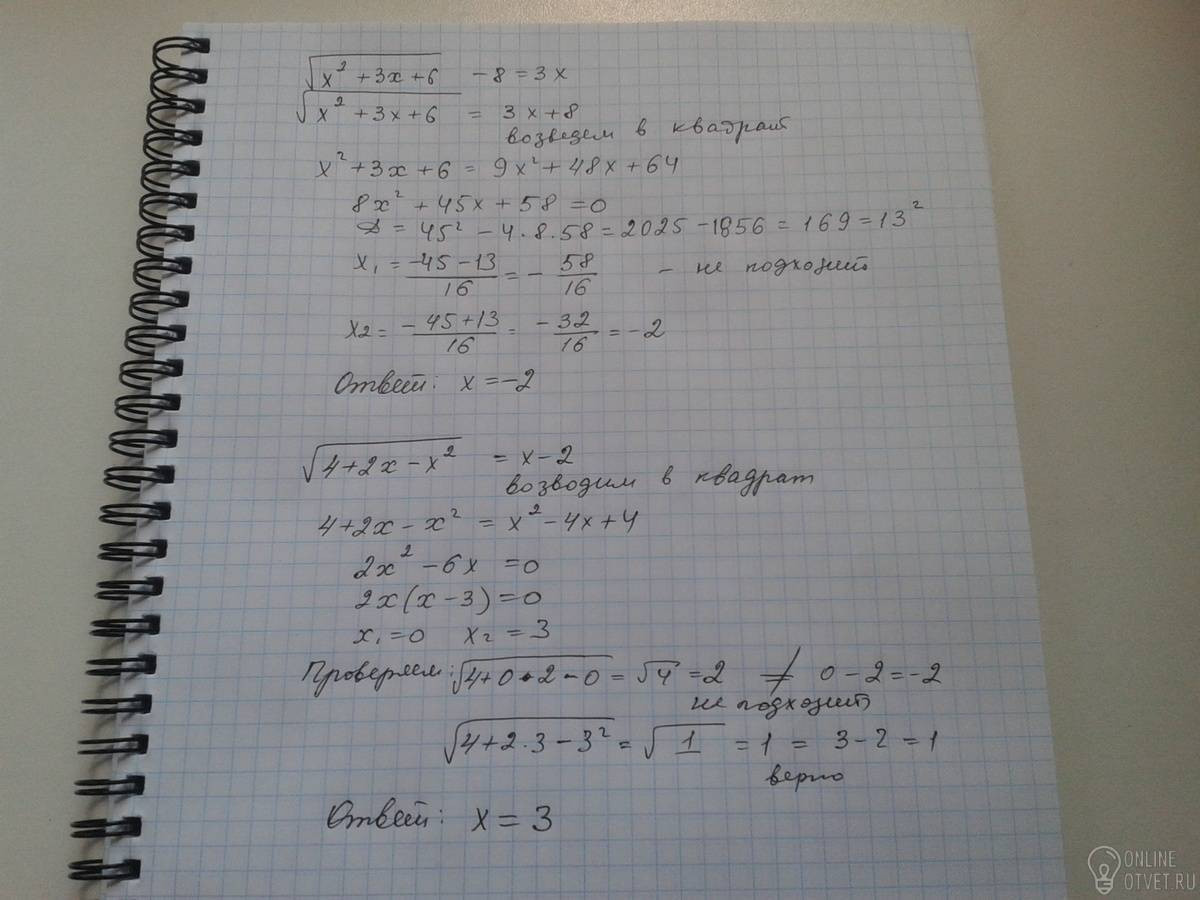 √(x² + 3x + 6) - 8 = 3x
√(x² + 3x + 6) = 3x + 8
возведем в квадрат
x² + 3x + 6 = 9x² + 48x + 64
8x² + 45x + 58 = 0
D = 45² - 4·8·58 = 2025 - 1856 = 169 = 13²
x₁ = (-45 - 13)/16 = - 58/16 - не подходит
x₂ = (-45 + 13)/16 = - 32/16 = -2
Ответ: x = -2
√(4 + 2x - x²) = x - 2
возводим в квадрат
4 + 2x - x² = x² - 4x + 4
2x² - 6x = 0
2x(x - 3) = 0
x₁ = 0 x₂ = 3
Проверяем: √(4 + 0·2 - 0) = √4 = 2 ≠ 0 - 2 = -2
не подходит
√(4 + 2·3 - 3²) = √1 = 1 = 3 - 2 = 1
верно
Ответ: x = 3
ONLINE
OTVET.RU